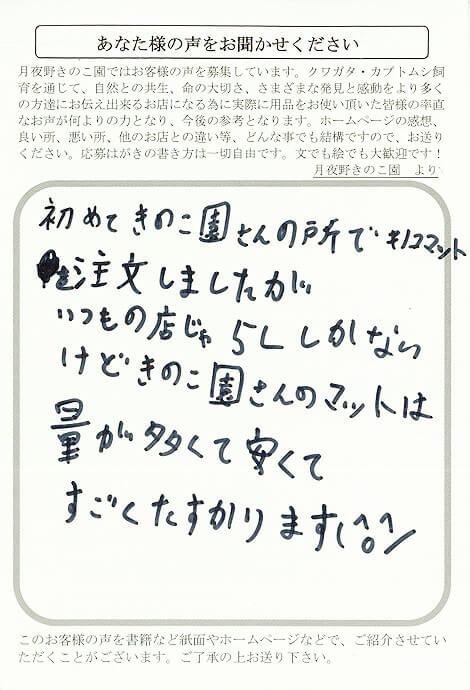 あなた様の声をお聞かせください
月夜野きのこ園ではお客様の声を募集しています。クワガタ・カブトムシ飼
育を通じて、自然との共生、命の大切さ、さまざまな発見と感動をより多く
の方達にお伝え出来るお店になる為に実際に用品をお使い頂いた皆様の率直
なお声が何よりの力となり、今後の参考となります。ホームページの感想、
良い所、悪い所、他のお店との違い等、どんな事でも結構ですので、お送り
ください。応募はがきの書き方は一切自由です。文でも絵でも大歓迎です！
月夜野きのこ園　より
初めてきのこ園さんの所でキノコマット
を注文しましたが
いつもの店じゃ5Lしかない
けどきのこ園さんのマットは
量が多くて安くて
すごくたすかります(^o^)/
このお客様の声を書籍など紙面やホームページなどで、ご紹介させてい
ただくことがございます。ご了承の上お送り下さい。